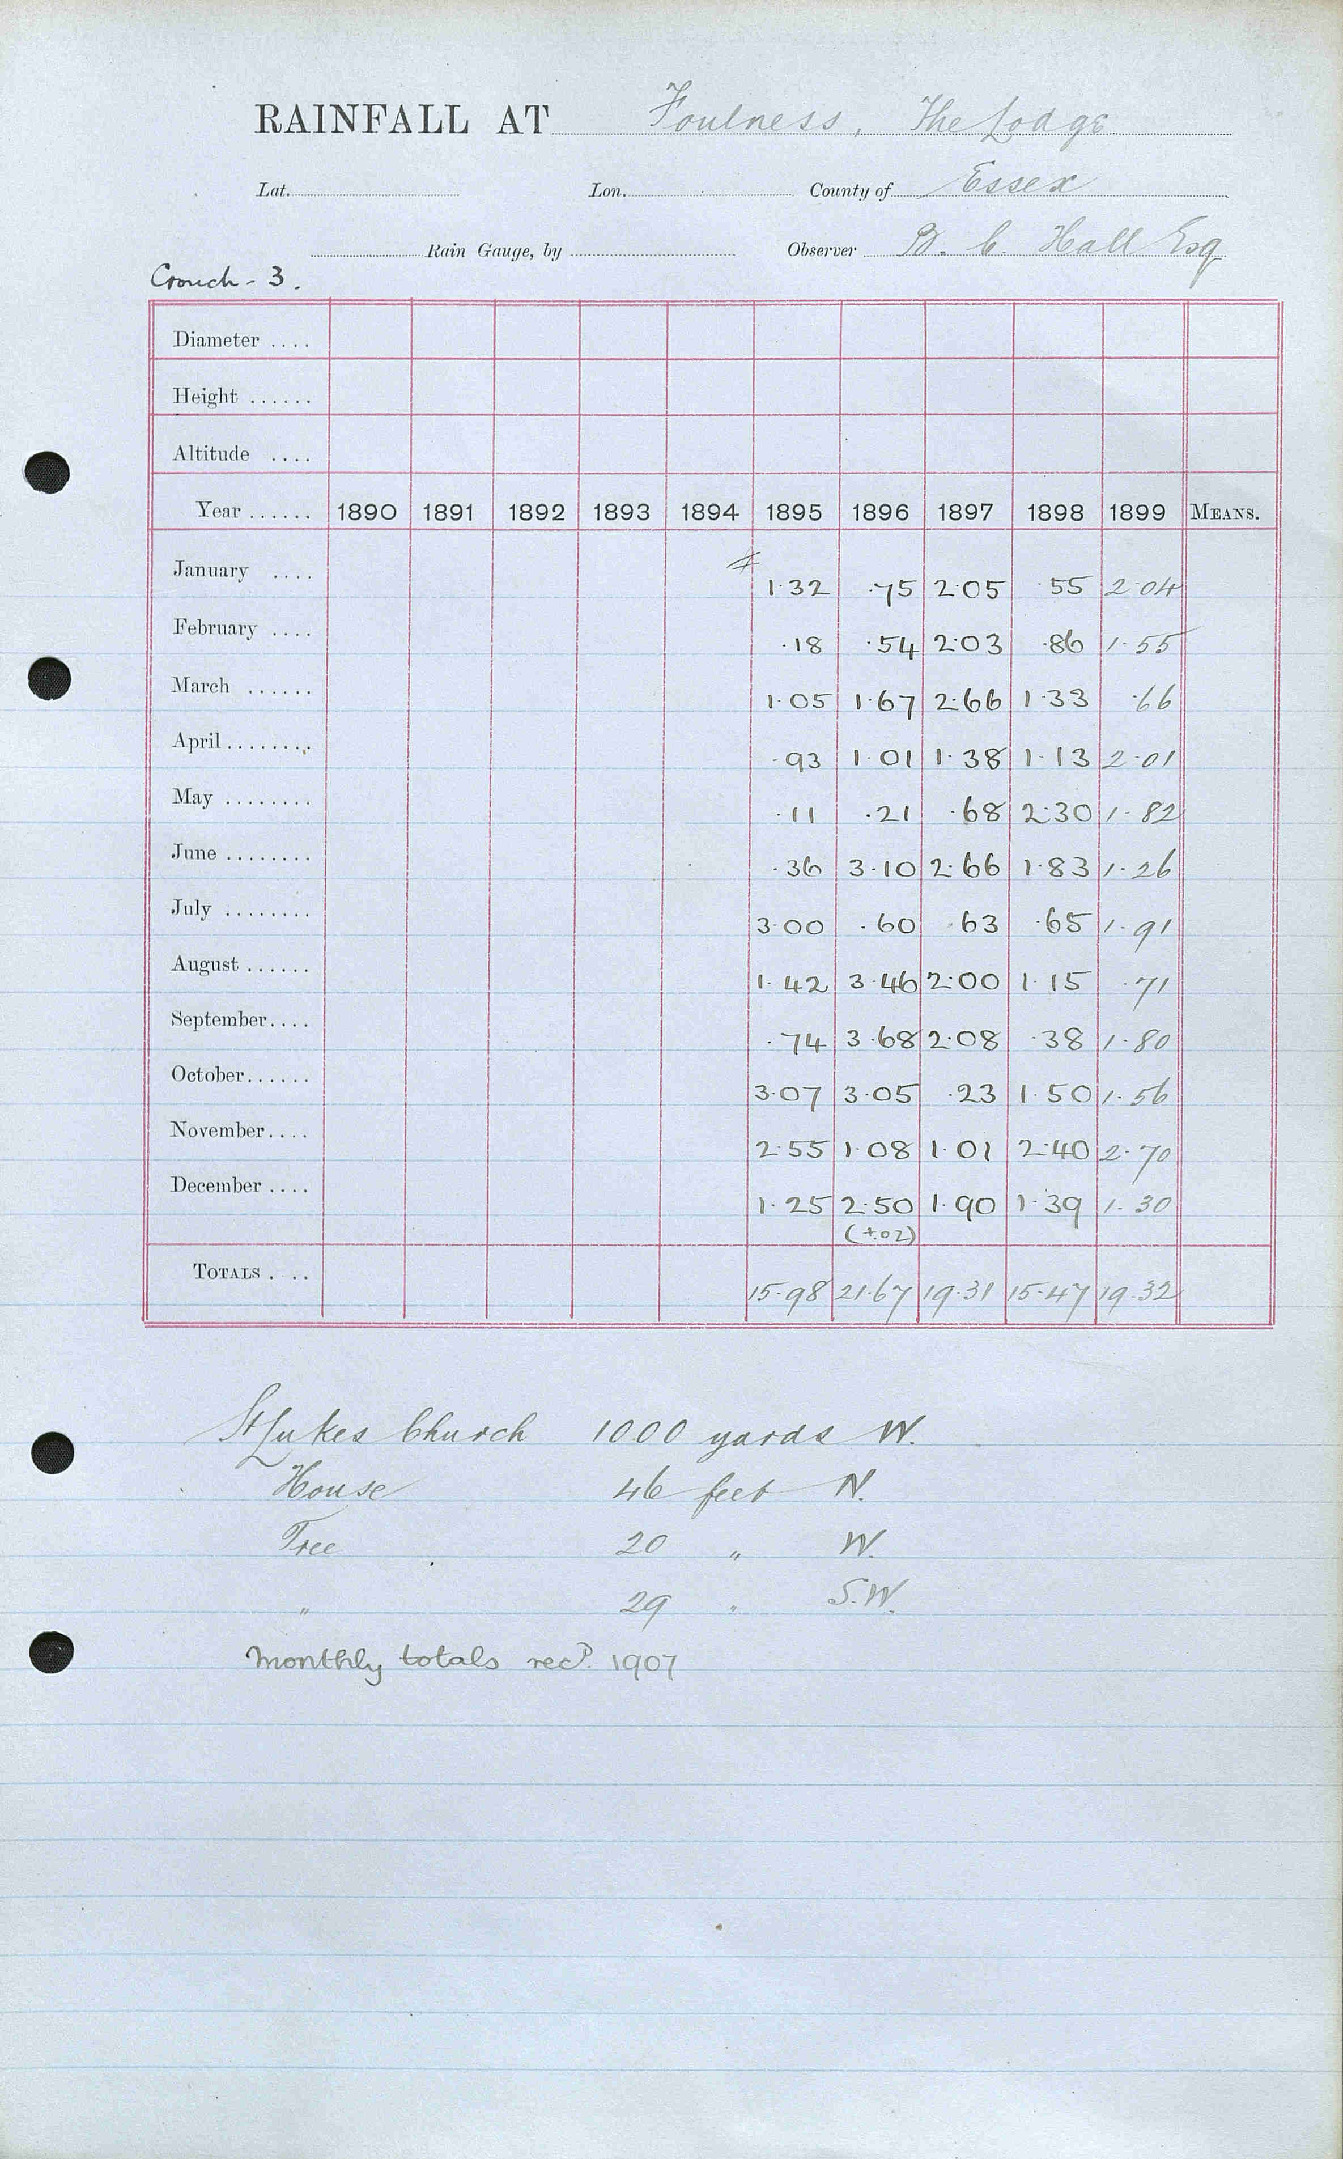 RAINFALL AT Foulness, The Lodge
Lat. Lon. County of Essex
Rain Gauge, by Observer C. Hall Esq
Crouch - 3.
Diameter ....
Height ......
Altitude ....
Year ...... 1890 1891 1892 1893 1894 1895 1896 1897 1898 1899 MEANS.
January .... # 1.32 .75 2.05 .55 2.04
February .... .18 .54 2.03 .86 1.55
March ...... 1.05 1.67 2.66 1.33 .66
April ........ .93 1.01 1.38 1.13 2.01
May ........ .11 .21 .68 2.30 1.82
June ........ .36 3.10 2.66 1.83 1.26
July ........ 3.00 .60 .63 .65 1.91
August ...... 1.42 3.46 2.00 1.15 .71
September.... .74 3.68 2.08 .38 1.80
October...... 3.07 3.05 .23 1.50 1.56
November.... 2.55 1.08 1.01 2.40 2.70
December .... 1.25 2.50 1.90 1.39 1.30
(+.02)
TOTALS . .. 15.98 21.67 19.31 15.47 19.32
St Lukes Church 1000 yards W.
House 46 feet N.
Tree 20 " W.
" 29 " S.W.
Monthly totals recd. 1907